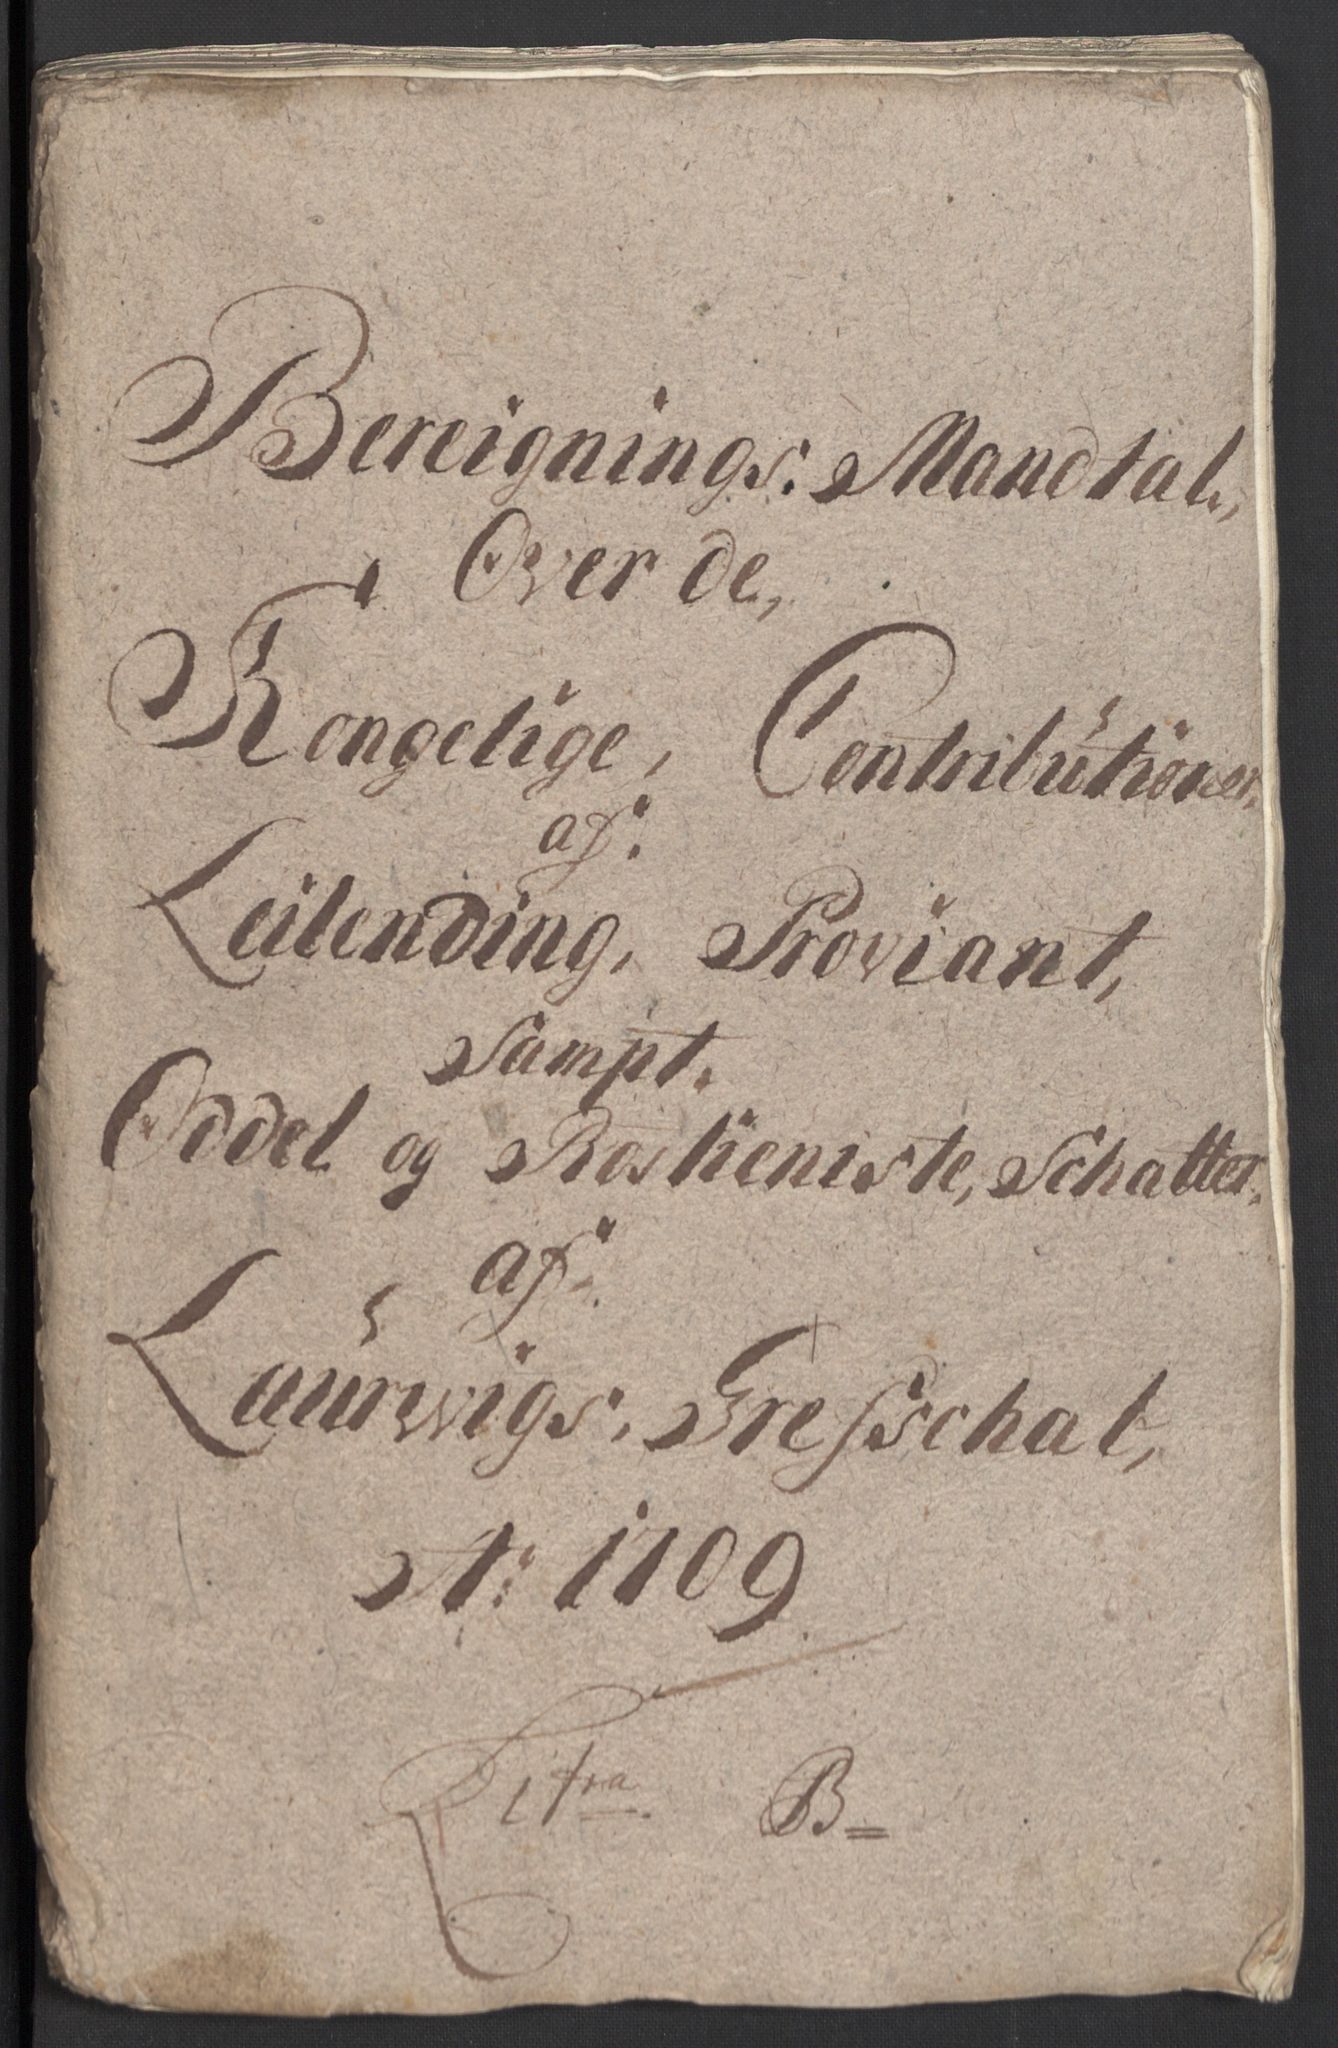 Bereignings. Mandtal,
Over de,
Kongelige, Contributioner.
af.
Leilending, Proviant,
Sampt.
Oddel og Rostieniste, Schatter.
af.
Laurwigs. Grefschat,
Ao: 1709
Litra B=